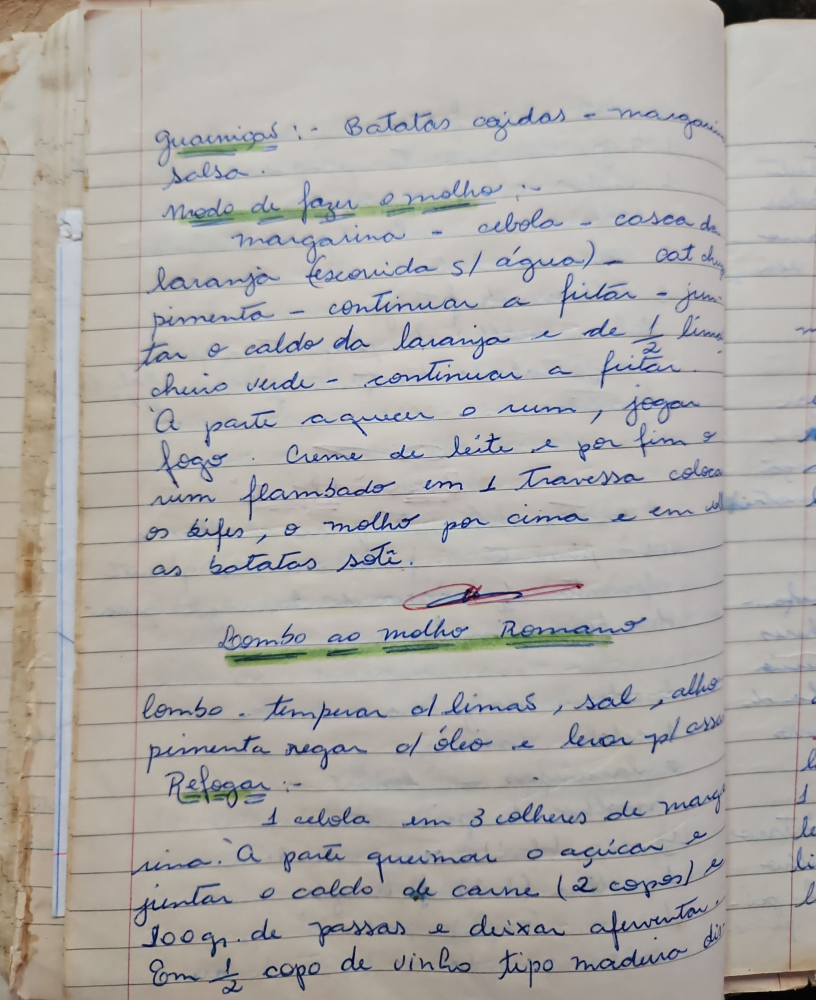 Guarnição :- Batatas cozidas - margarin
salsa.
Modo de fazer o molho :-
margarina - cebola - casca da
laranja (escorrida s/ água) - cat chup
pimenta - continuar a fritar - jun-
tar o caldo da laranja e de 1/2 limão
cheiro verde - continuar a fritar.
À parte aquecer o rum, jogar
fogo. Creme de leite e por fim o
rum flambado em 1 travessa coloca
os bifes, o molho por cima e em vol
as batatas sotê.
Lombo ao molho Romano
lombo - temperar c/ limão, sal, alho
pimenta regar c/ óleo e levar p/ assa
Refogar :-
1 cebola em 3 colheres de marga
rina. À parte queimar o açúcar e
juntar o caldo de carne (2 copos) e
100 gr. de passas e deixar aferventar.
Em 1/2 copo de vinho tipo madeira dis
1